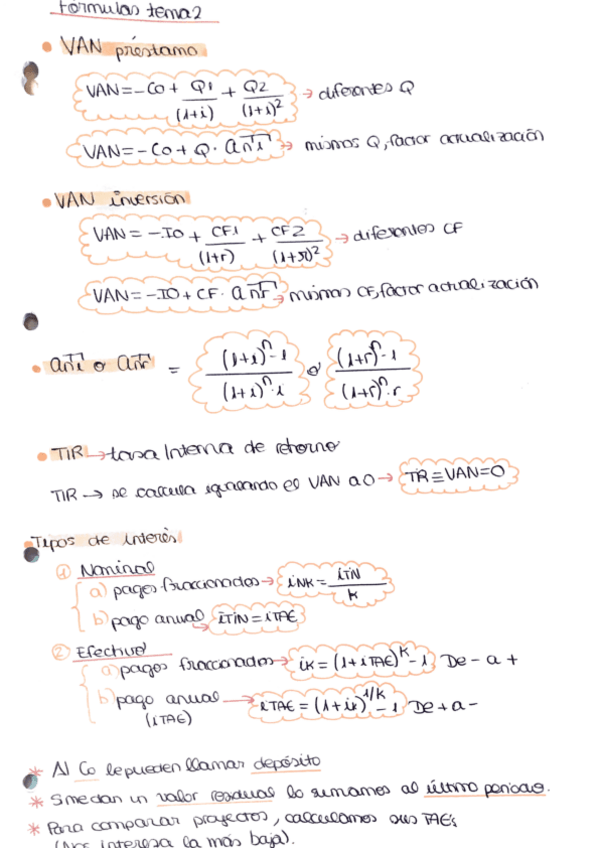 Fórmulas tema 2
• VAN préstamo
VAN = -Co + Q1/(1+i) + Q2/(1+i)² → diferentes Q
VAN = -Co + Q · an̅i → mismos Q, factor actualización
• VAN inversión
VAN = -IO + CF1/(1+r) + CF2/(1+r)² → diferentes CF
VAN = -IO + CF · an̅r → mismos CF, factor actualización
• an̅i o an̅r = (1+i)ⁿ-1/(1+i)ⁿ·i o (1+r)ⁿ-1/(1+r)ⁿ·r
• TIR → tasa Interna de retorno
TIR → se calcula igualando el VAN a 0 → TIR ≡ VAN=0
• Tipos de interés
① Nominal
a) pagos fraccionados → iNK = iTIN/K
b) pago anual → iTIN = iTAE
② Efectivo
a) pagos fraccionados → iK = (1+iTAE)^K - 1 De - a +
b) pago anual → iTAE = (1+ik)^1/K - 1 De + a -
(iTAE)
* Al Co le pueden llamar depósito
* Si me dan un valor residual lo sumamos al último periodo.
* Para comparar proyectos, calculamos sus TAE;
(Nos interesa la más baja).